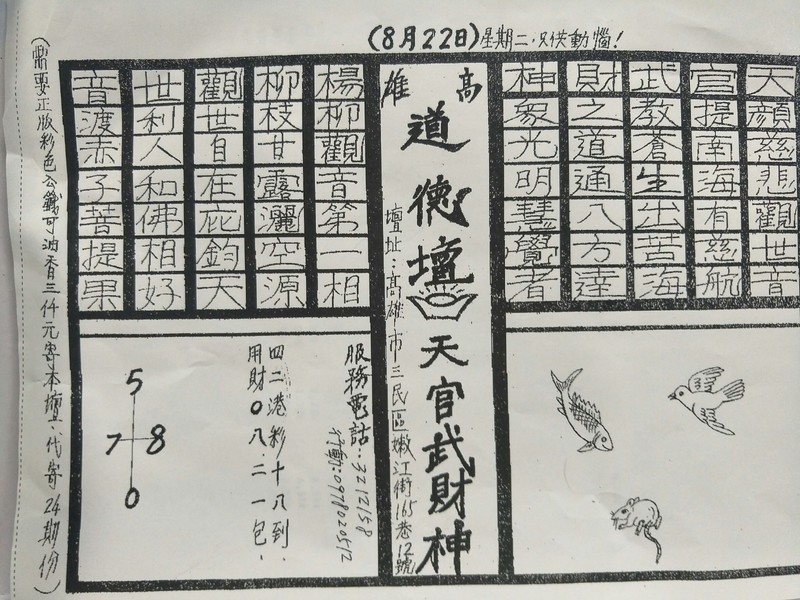 (8月22日)星期二.只供動惱!
天顏慈悲觀世音
官提南海有慈航
武教蒼生出苦海
財之道通八方達
神眾光明慧覺者
高雄
道德壇
天官武財神
壇址:高雄市三民區嫩江街165巷12號
楊柳觀音第一相
柳枝甘露灑空源
觀世自在庇鈞天
世利人和佛相好
音渡赤子菩提果
服務電話:3212158
行動:0978020512
四二港彩十八到.
用財0八.二一包.
5
7 8
0
(需要正版彩色公錢可油香三仟元寄本壇.代寄24期份)